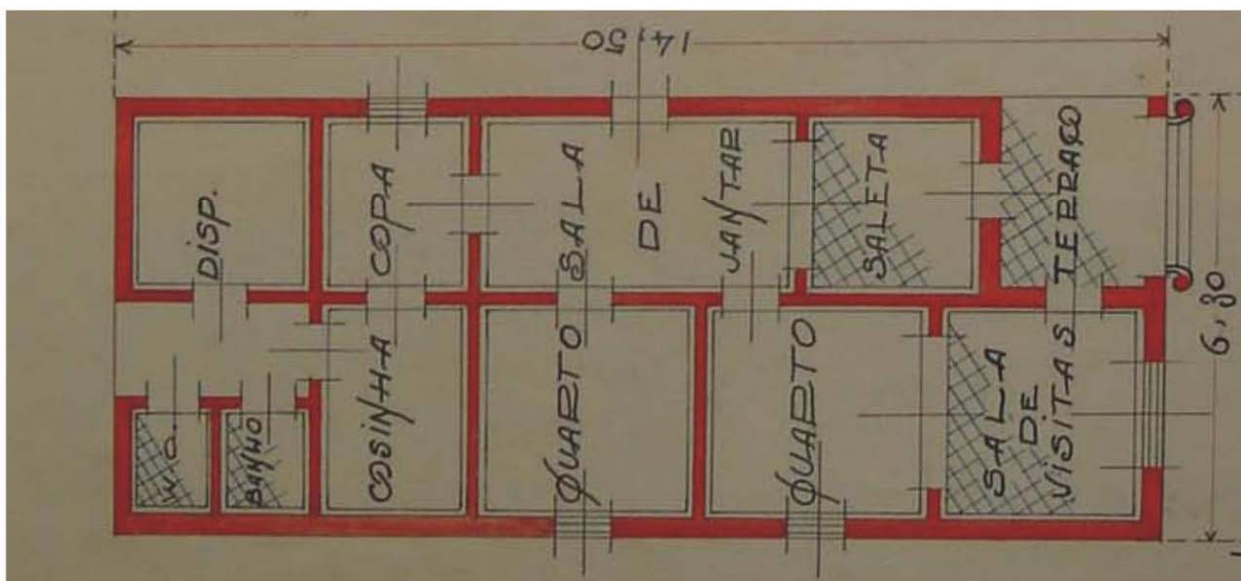 14,50
DISP.
COPA
SALA
DE
JANTAR
SALETA
TERRAÇO
6,30
W.C.
BANHO
COSINHA
QUARTO
QUARTO
SALA
DE
VISITAS